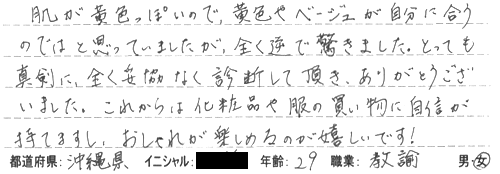 肌が黄色っぽいので、黄色やベージュが自分に合う
のではと思っていましたが、全く逆で驚きました。とっても
真剣に、全く妥協なく診断して頂き、ありがとうござ
いました。これからは化粧品や服の買い物に自信が
持てますし、おしゃれが楽しめるのが嬉しいです!
都道府県:沖縄県 イニシャル: 年齢:29 職業:教諭 男・女